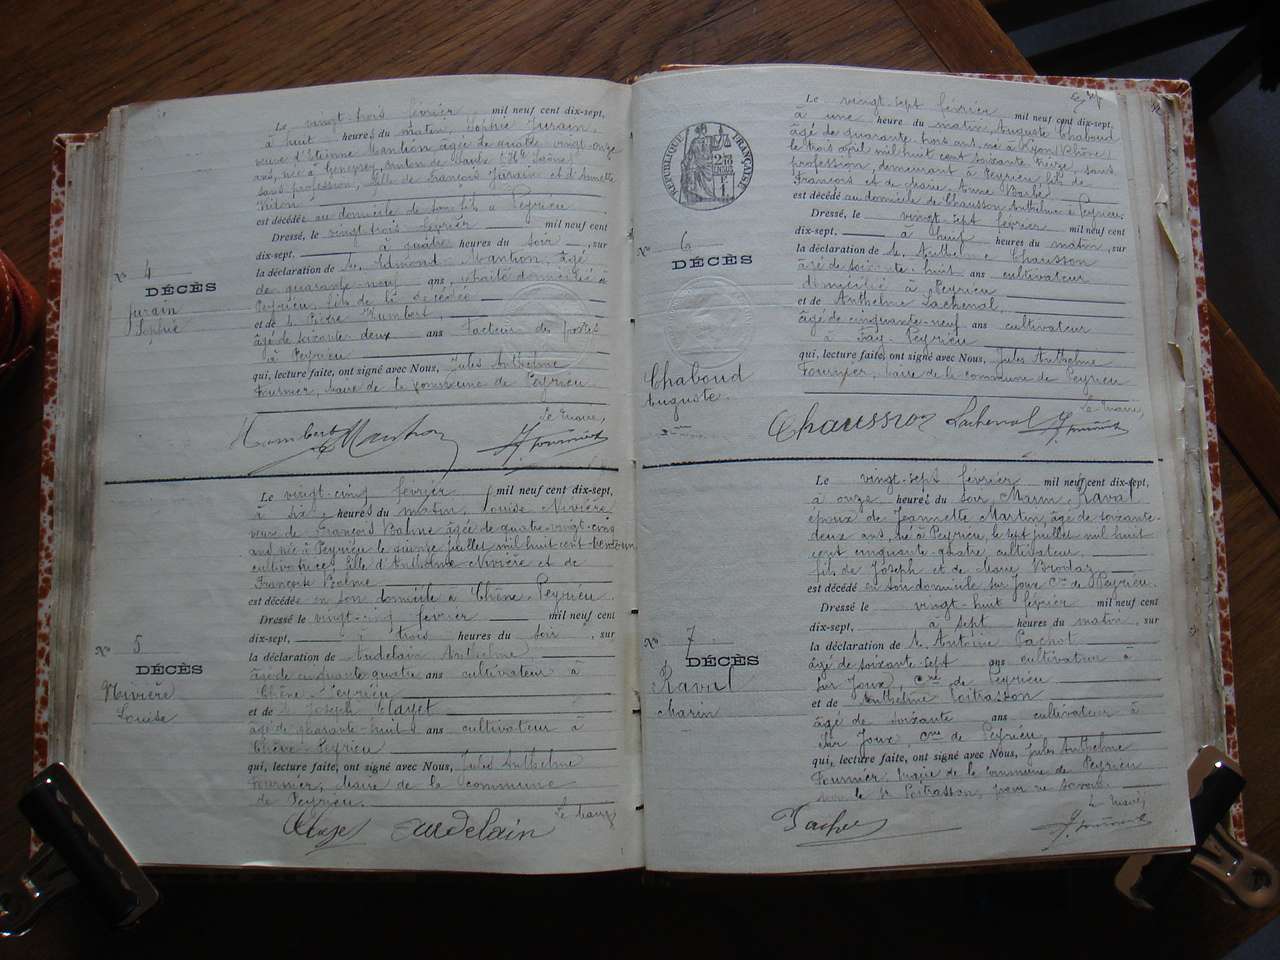 Le vingt trois février mil neuf cent dix-sept,
à huit heures du matin, Sophie Jurain,
veuve d'Etienne Mantion âgée de quatre vingt-onze
ans, née à Genevrey, canton de Saulx (Hte Saône)
sans profession, fille de François Jurain et d'Annette
est décédée au domicile de son fils à Peyrieu
Dressé, le vingt trois février mil neuf cent
dix-sept, à quatre heures du soir, sur
la déclaration de M. Edmond Mantion, âgé
de quarante-neuf ans, retraité domicilié à
Peyrieu, fils de la décédée
et de M. Pierre Humbert,
âgé de soixante deux ans Facteur des postes
à Peyrieu
qui, lecture faite, ont signé avec Nous, Jules Anthelme
Fournier, Maire de la commune de Peyrieu
No 4
DÉCÈS
Jurain
Sophie
Le Maire,
Humbert Mantion J. Fournier
Le vingt-cinq février mil neuf cent dix-sept,
à six heures du matin, Louise Nivière,
veuve de François Balme âgée de quatre-vingt-cinq
ans, née à Peyrieu le quinze juillet mil huit cent trente un
cultivatrice, fille d'Anthelme Nivière et de
Françoise Balme
est décédée en son domicile à Chêne-Peyrieu
Dressé le vingt-cinq février mil neuf cent
dix-sept, à trois heures du soir, sur
la déclaration de Audelain Anthelme
âgé de cinquante quatre ans cultivateur à
Chêne-Peyrieu
et de Joseph Clayet
âgé de quarante-huit ans cultivateur à
Chêne-Peyrieu
qui, lecture faite, ont signé avec Nous, Jules Anthelme
Fournier, Maire de la commune
de Peyrieu.
No 5
DÉCÈS
Nivière
Louise
Le Maire
Audelain
Le vingt-sept février mil neuf cent dix-sept,
à une heure du matin, Auguste Chaboud
âgé de quarante trois ans, né à (Rhône)
le trois avril mil huit cent soixante treize, sans
profession, demeurant à Peyrieu fils de
François et de Marie Anne Barbe
est décédé au domicile de Chausson Anthelme à Peyrieu.
Dressé, le vingt-sept février mil neuf cent
dix-sept, à huit heures du matin, sur
la déclaration de M. Anthelme Chausson
âgé de soixante-huit ans cultivateur
domicilié à Peyrieu
et de Anthelme Lachenal,
âgé de cinquante-neuf ans cultivateur
à Fay-Peyrieu
qui, lecture faite, ont signé avec Nous, Jules Anthelme
Fournier, Maire de la commune de Peyrieu
RÉPUBLIQUE FRANÇAISE
No 6
DÉCÈS
Chaboud
Auguste.
Le Maire,
Chausson Lachenal J. Fournier
Le vingt-sept février mil neuf cent dix-sept,
à onze heures du soir Marin Raval
époux de Jeannette Martin, âgé de soixante-
deux ans, né à Peyrieu, le sept juillet mil huit
cent cinquante-quatre, cultivateur
fils de Joseph et de Marie Brondaz
est décédé en son domicile sur Joux Cne de Peyrieu.
Dressé le vingt-huit février mil neuf cent
dix-sept, à sept heures du matin, sur
la déclaration de M. Antoine Pachot
âgé de soixante-sept ans cultivateur à
sur Joux, Cne de Peyrieu
et de Anthelme Poitrasson
âgé de soixante ans cultivateur à
Sur Joux, Cne de Peyrieu
qui, lecture faite, ont signé avec Nous, Jules Anthelme
Fournier, Maire de la commune de Peyrieu
non le Sr Poitrasson, pour ne savoir.
No 7
DÉCÈS
Raval
Marin
Le Maire,
J. Fournier